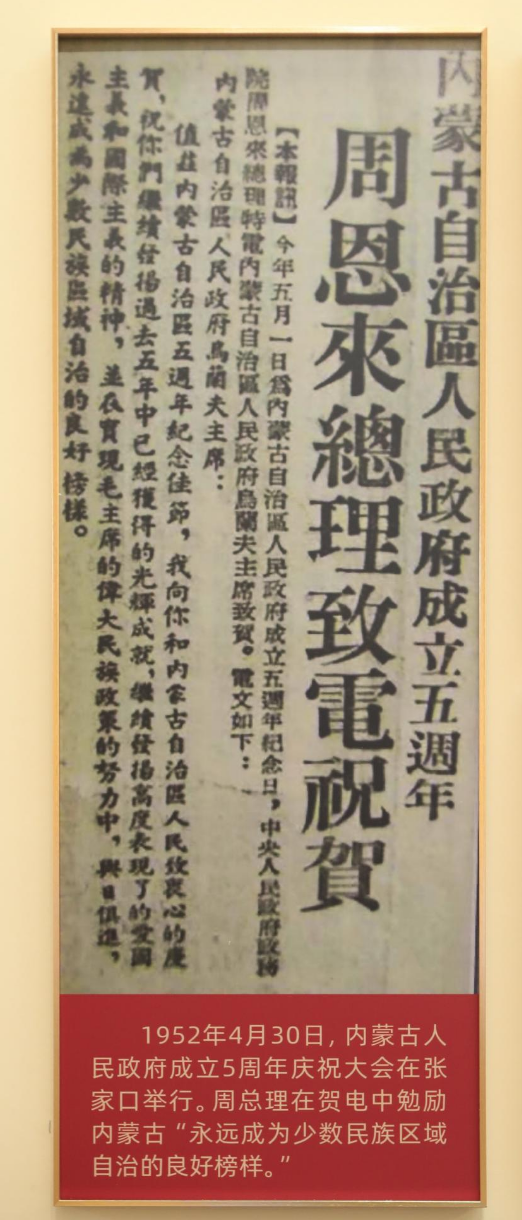 内蒙古自治區人民政府成立五週年
周恩來總理致電祝賀
【本報訊】今年五月一日爲內蒙古自治區人民政府成立五週年紀念日，中央人民政府政務
院周恩來總理特電內蒙古自治區人民政府烏蘭夫主席致賀。電文如下：
內蒙古自治區人民政府烏蘭夫主席：
值茲內蒙古自治區五週年紀念佳節，我向你和內蒙古自治區人民致衷心的慶
賀，祝你們繼續發揚過去五年中已經獲得的光輝成就，繼續發揚高度表現了的愛國
主義和國際主義的精神，並在實現毛主席的偉大民族政策的努力中，與日俱進，
永遠成爲少數民族區域自治的良好榜樣。
1952年4月30日，内蒙古人
民政府成立5周年庆祝大会在张
家口举行。周总理在贺电中勉励
内蒙古“永远成为少数民族区域
自治的良好榜样。”